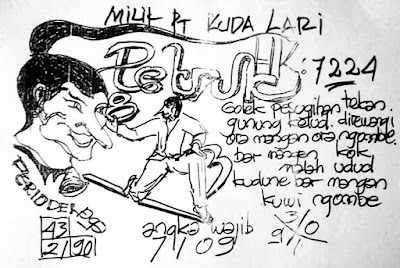 MILIK PT KUDA LARI
Petruk : 7224
Golek pesugihan tekan
gunung kelud. direwangi
ora mangan ora ngombe.
bar mangen kok
malah udud
kudune bar mangan
kuwi ngombe
PERIODE
43
2/90
angka wajib
7/09
3/0
9/1